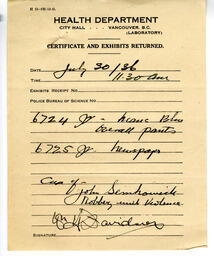 HEALTH DEPARTMENT
CITY HALL . . . VANCOUVER, B.C.
(LABORATORY)
CERTIFICATE AND EXHIBITS RETURNED.
DATE July 30/36
TIME 11:30 am
EXHIBITS RECEIPT No.
POLICE BUREAU OF SCIENCE No.
6724 Jr. mans Blue
overall pants
6725 Jr. Newspaper
Case of
John Semkowich
Robbery with Violence
SIGNATURE